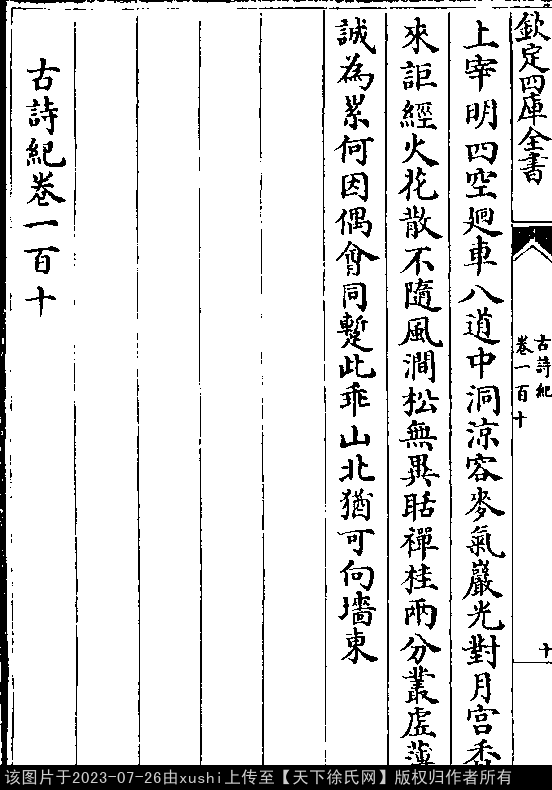 欽定四庫全書
古詩紀
卷一百十
十
上宰明四空廻車八道中洞涼容麥氣巖光對月宮香
來詎經火花散不隨風澗松無異聒禪桂兩分叢虛薄
誠為累何因偶會同蹔此乖山北猶可向墻東
古詩紀卷一百十
该图片于2023-07-26由xushi上传至【天下徐氏网】版权归作者所有